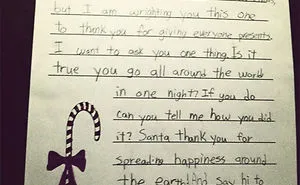 but I am wrighting you this one
to thank you for giving everyone presents.
I want to ask you one thing. Is it
true you go all around the world
in one night? If you do
can you tell me how you did
it? Santa thank you for
spreading happiness around
the earth! And say hi to